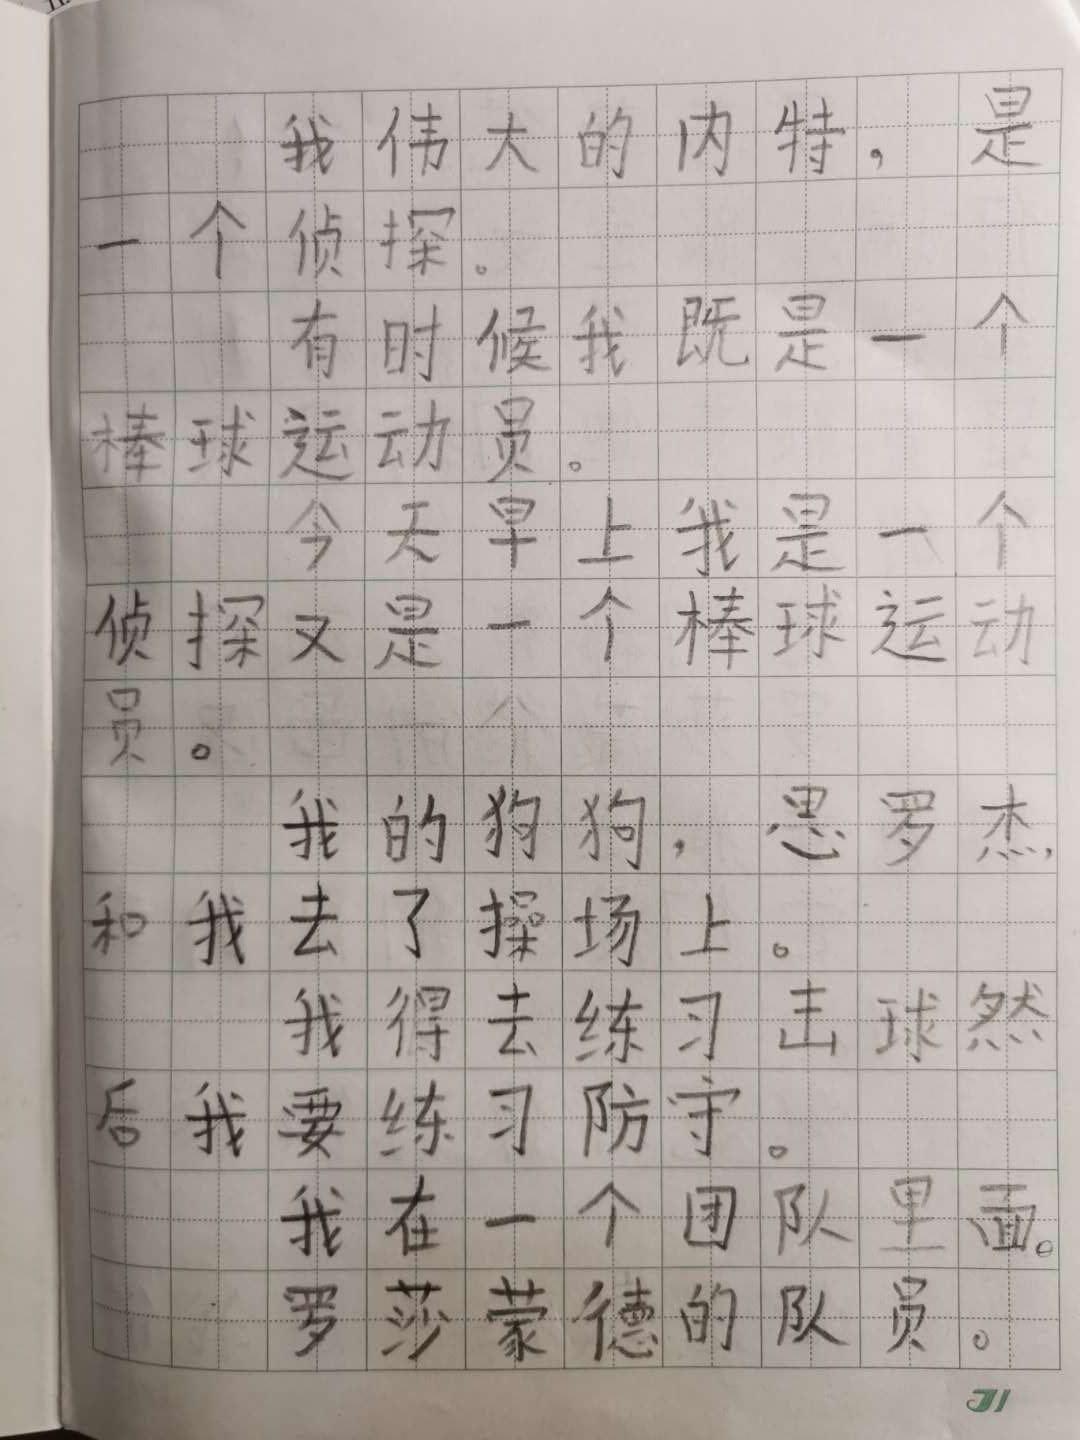 我伟大的内特，是
一个侦探。
有时候我既是一个
棒球运动员。
今天早上我是一个
侦探又是一个棒球运动
员。
我的狗狗，思罗杰，
和我去了操场上。
我得去练习击球然
后我要练习防守。
我在一个团队里面。
罗莎蒙德的队员。